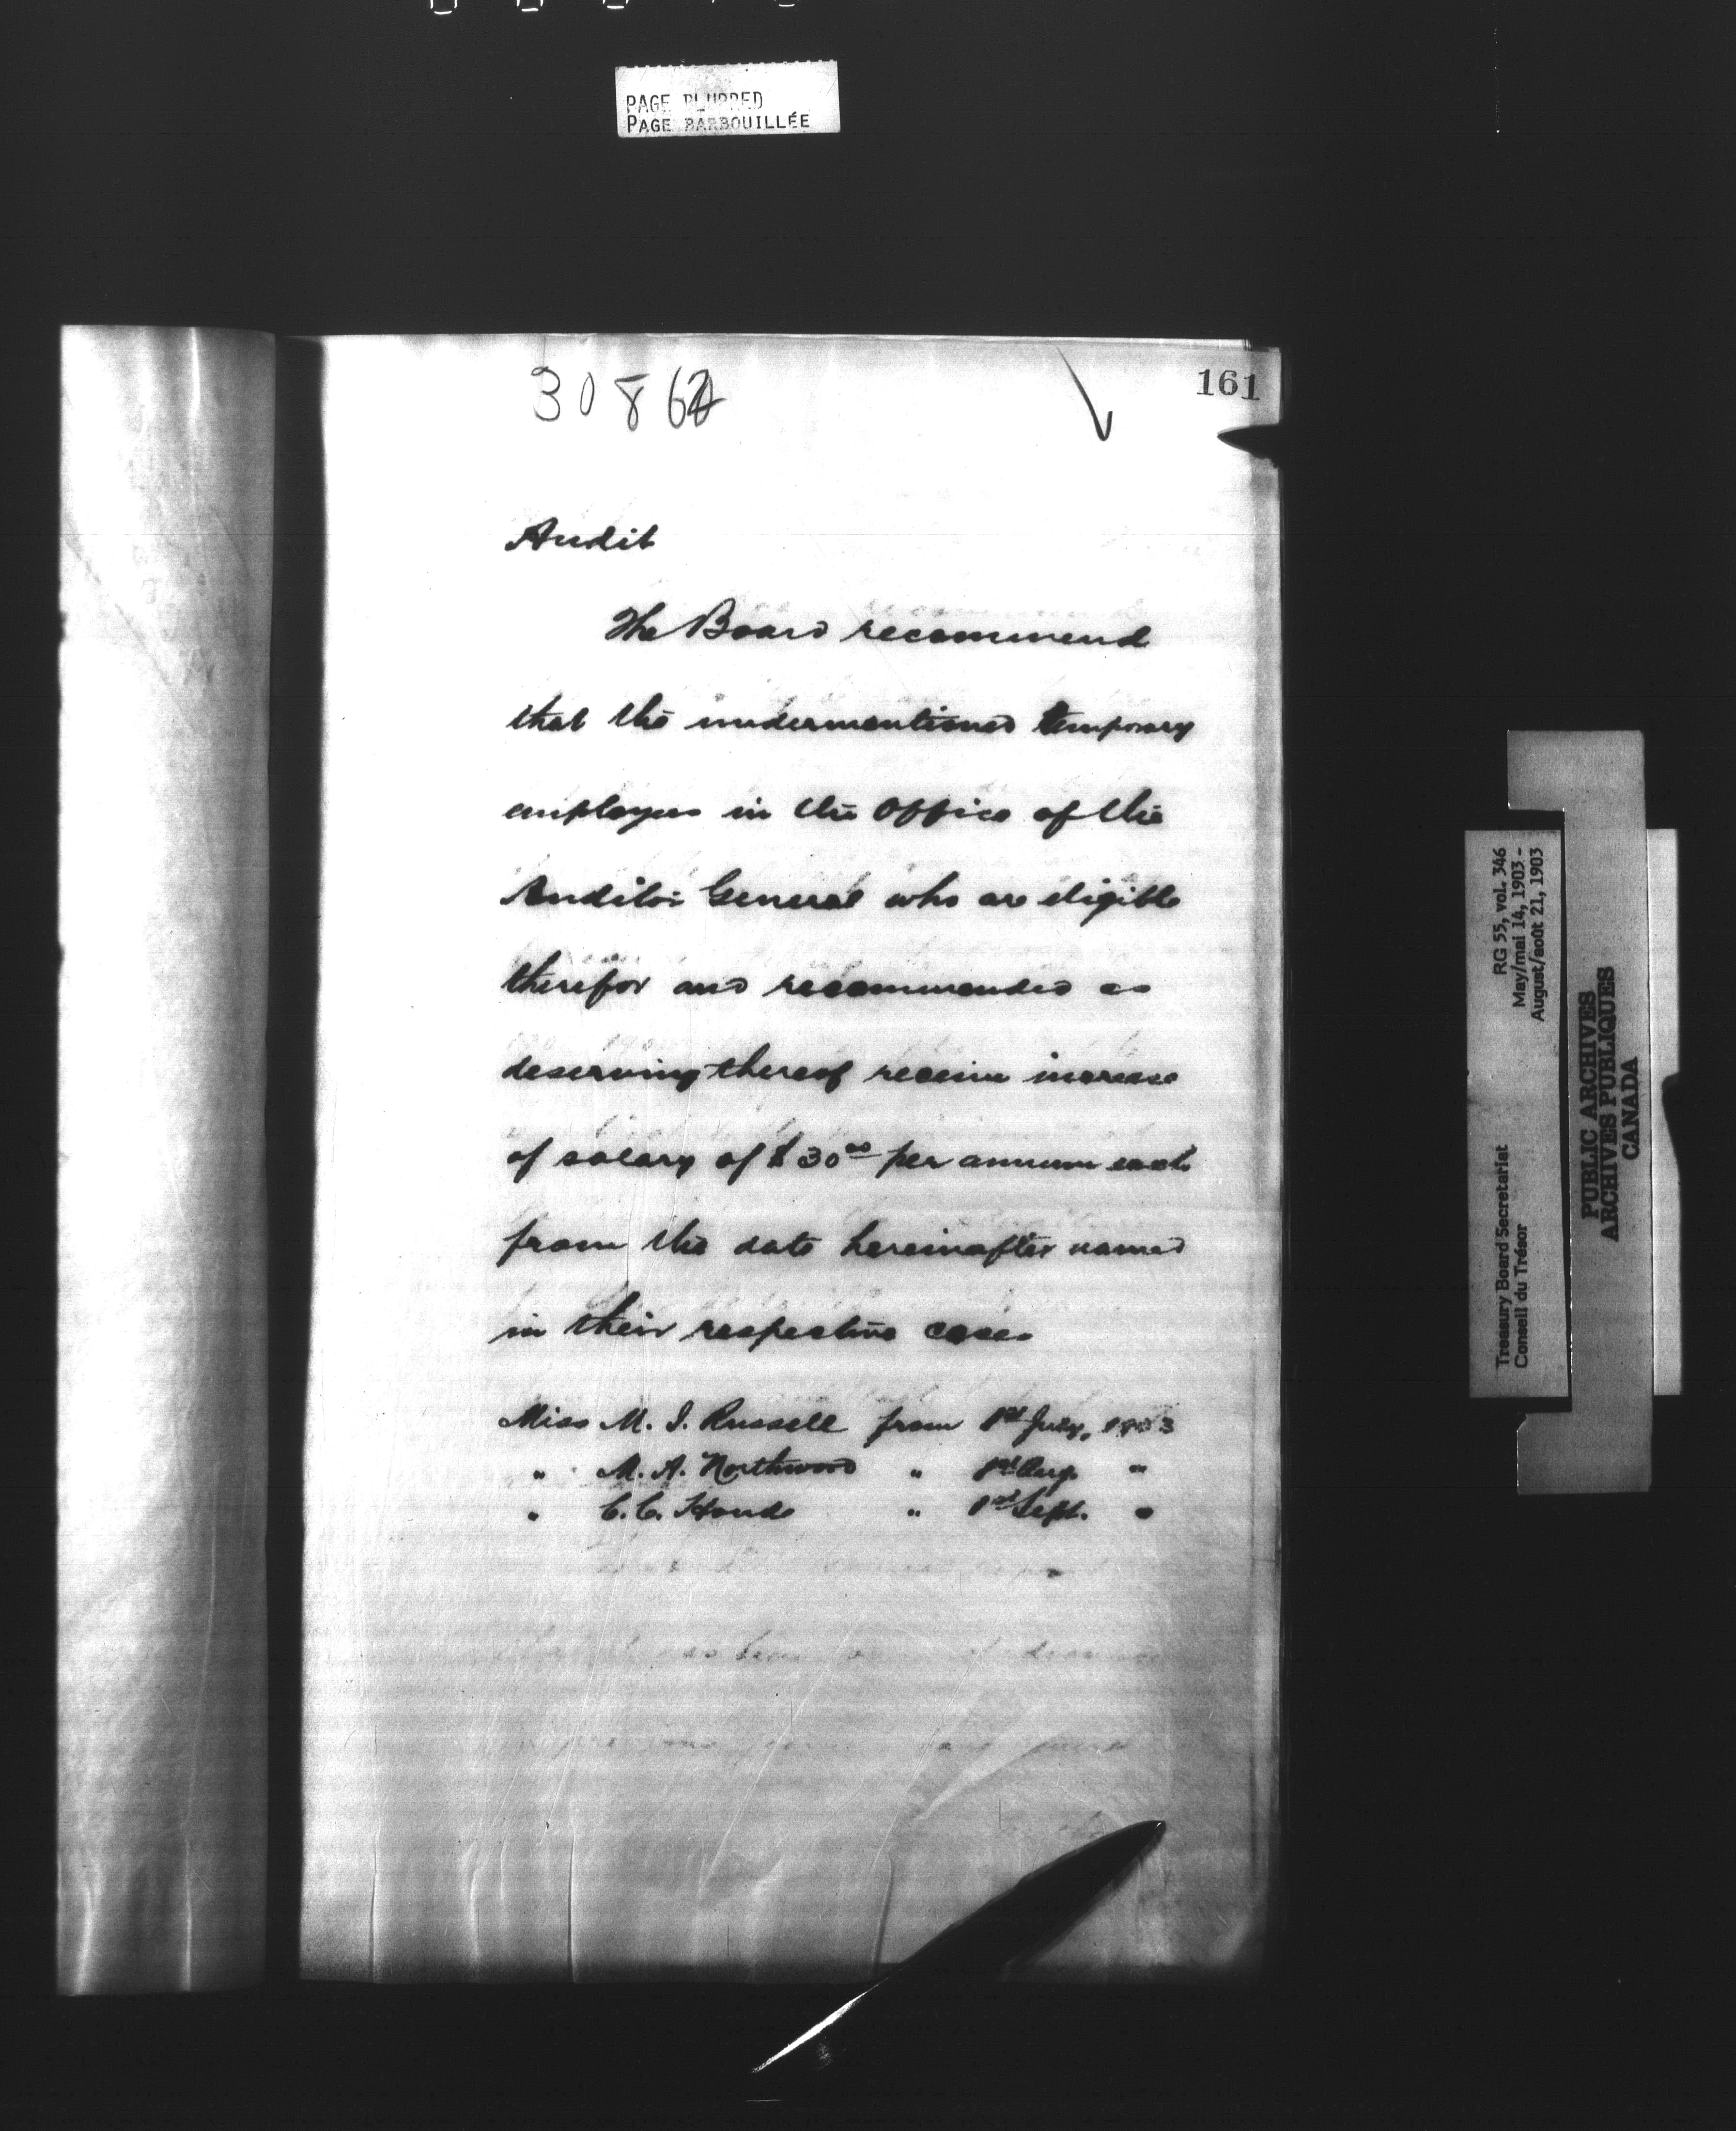 PAGE BLURRED
PAGE BARBOUILLÉE
161
Audit
The Board recommend
that the undermentioned temporary
employees in the Office of the
Auditor General who are eligible
therefor and recommended as
deserving thereof receive increase
of salary of $30⁰⁰ per annum each
from the date hereinafter named
in their respective cases
Miss M. I. Russell from 1st July, 1903
" M. A. Northwood " 1st Aug. "
" C. C. Houde " 1st Sept. "
RG 55, vol. 346
May/mai 14, 1903 -
August/août 21, 1903
Treasury Board Secretariat
Conseil du Trésor
PUBLIC ARCHIVES
ARCHIVES PUBLIQUES
CANADA